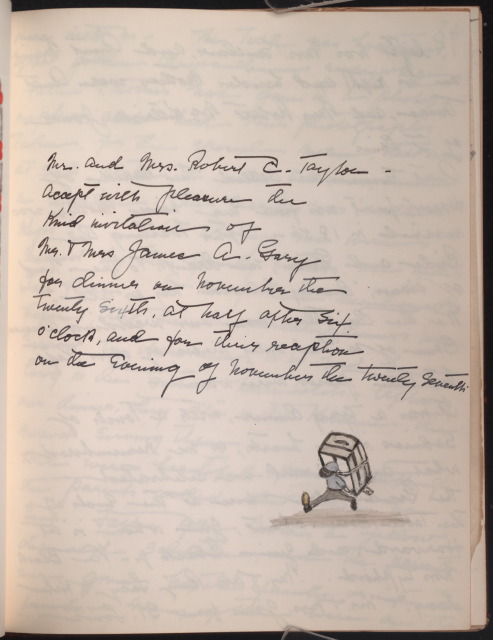 Mr. and Mrs. Robert C. Taylor -
accept with pleasure the
kind invitation of
Mr. & Mrs James A. Gary
for dinner on November the
twenty sixth, at half after six
o'clock, and for their reception
on the Evening of November the twenty seventh